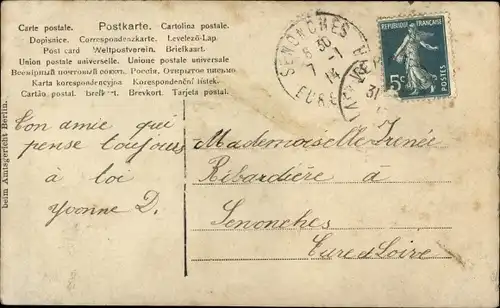 Carte postale. Postkarte. Cartolina postale.
Dopisnice. Correspondenzkarte. Levelező-Lap.
Post card Weltpostverein. Briefkaart.
Union postale universelle. Unione postale universale
Всемірный почтовый союзъ. Россія. Открытое письмо
Karta korespondencyjna Korespondenční lístek.
Cartão postal. Brefkort. Brevkort. Tarjeta postal.
SENONCHES
8 30
7 -1
EURE
31
REPUBLIQUE FRANÇAISE
5c
POSTES
beim Amtsgericht Berlin.
Ton amie qui
pense toujours
à toi
Yvonne D.
Mademoiselle Irénée
Ribardière à
Senonches
Eure et Loire